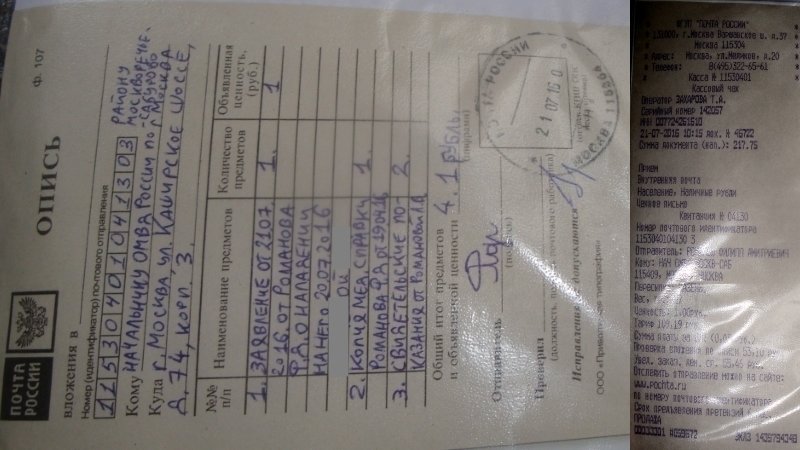 ПОЧТА
РОССИИ
ф. 107
ОПИСЬ
вложения в
Номер (идентификатор) почтового отправления
11530401041303
Кому НАЧАЛЬНИКУ ОМВД России по РАЙОНУ
МОСКВОРЕЧЬЕ-
САБУРОВО
г. МОСКВА
Куда г. МОСКВА, ул. КАШИРСКОЕ ШОССЕ,
Д. 74, КОРП. 3.
№№ п/п
Наименование предметов
Количество предметов
Объявленная ценность, (руб.)
1. ЗАЯВЛЕНИЕ ОТ 21.07. 1. 1
2016 ОТ РОМАНОВА
Ф.Д. О НАПАДЕНИИ
НА НЕГО 20.07.2016
ОЙ
2. КОПИЯ МЕД. СПРАВКИ 1.
РОМАНОВА Ф.Д. ОТ 19.04.16
3. СВИДЕТЕЛЬСКИЕ ПО- 2.
КАЗАНИЯ ОТ РОМАНОВОЙ
Общий итог предметов
и объявленной ценности 4. 1 рубль.
(цифрами)
Отправитель
(подпись)
Проверил
(должность, подпись почтового работника)
Исправления не допускаются
ПОЧТА РОССИИ
21 07 16
МОСКВА 115304
ФГУП "ПОЧТА РОССИИ"
131000, г.Москва Варшавское ш. д.37
Москва 115304
Адрес: Москва, ул.Медиков, д.20
Телефон: 8(495)322-65-61
Касса N 11530401
Кассовый чек
Оператор ЗАХАРОВА Т.А.
Серийный номер 142057
ИНН 007724261610
21-07-2016 10:15 док. N 46722
Сумма документа (нал.): 217.75
Прием
Внутренняя почта
Население, Наличные рубли
Ценное письмо
Квитанция N 04130
Номер почтового идентификатора
1153040104130 3
Отправитель: ФИЛИПП ДМИТРИЕВИЧ
Кому: НАЧ
115409,
Ценность: 1.00
Тариф 109,19
Отследить отправление можно на сайте:
www.pochta.ru
по номеру почтового идентификатора
Срок предъявления претензий 6 мес.
ПРОДАЖА
00003301 #059672 ЭКЛЗ 1439794348